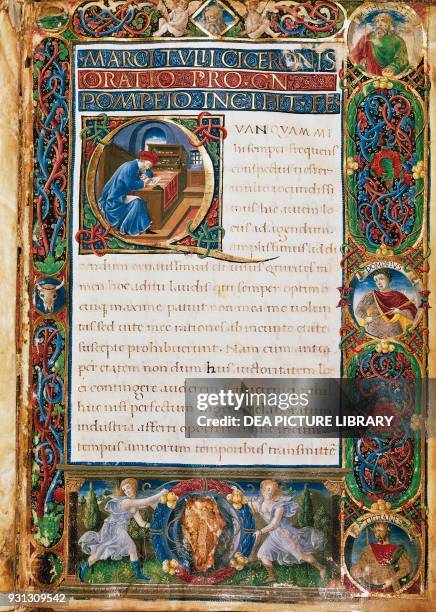 MARCI TVLLI CICERONIS
ORATIO PRO GN
POMPEIO INCIPIT FE
QVANQVAM MI
hi semper frequens
conspectus uester
multo iocundissi
mus hic autem lo
cus ad agendum
amplissimus ad di
cendum ornatissimus est uisus quirites ta
men hoc aditu laudis qui semper optimo
cuiq maxime patuit non mea me uolun
tas sed uite mee rationes ab ineunte etate
suscepte prohibuerunt. Nam cum antea
per etatem non dum huius auctoritatem lo
ci contingere auderem
huc nisi perfectum
industria afferri
tempus amicorum temporibus transmitte
POMPEIVS
gettyimages
DEA PICTURE LIBRARY
931309542